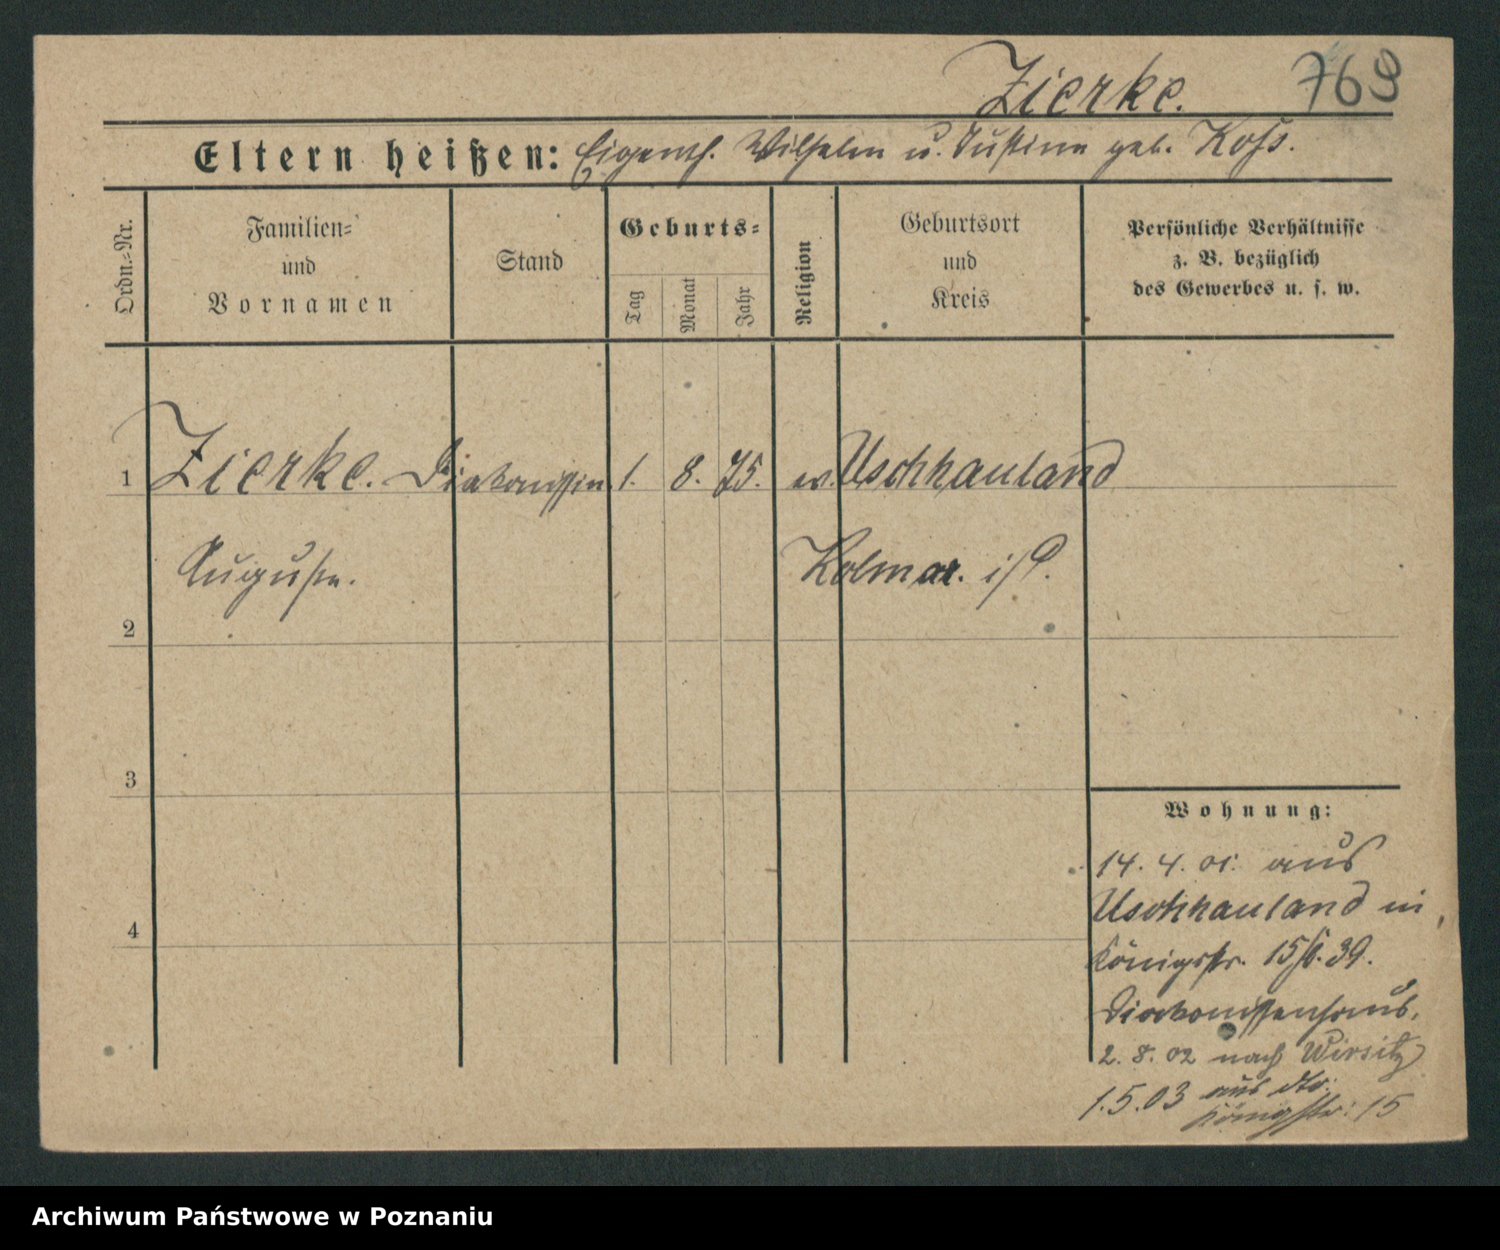 Zierke. 769
Eltern heißen: Eigenth. Wilhelm u. Justine geb. Koss.
Ordn.-Nr.
Familien-
und
Vornamen
Stand
Geburts-
Tag
Monat
Jahr
Religion
Geburtsort
und
Kreis
Persönliche Verhältnisse
z. B. bezüglich
des Gewerbes u. s. w.
1 Zierke. Diakonissin 1. 8. 75. ev. Uschhauland
Auguste. Kolmar. i/P.
2
3
4
Wohnung:
14. 4. 01. aus
Uschhauland in
Königstr. 15/ 39.
Diakonissenhaus.
2. 8. 02 nach Wirsitz
1.5.03 aus dto.
Königstr. 15
Archiwum Państwowe w Poznaniu